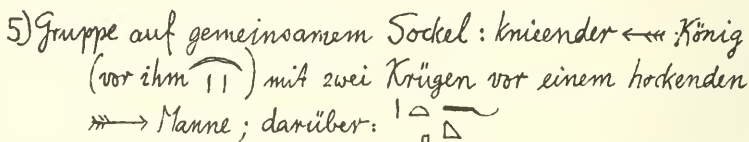 5) Gruppe auf gemeinsamem Sockel: knieender ⬳ König
(vor ihm ) mit zwei Krügen vor einem hockenden
⤐ Manne; darüber: